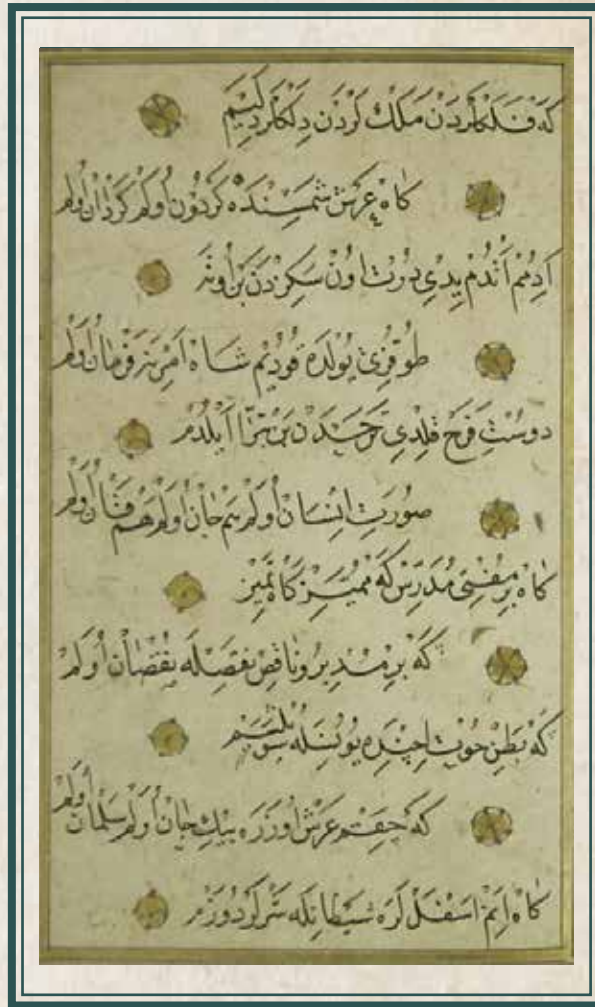 كه فلكلردن ملكلردن دلكلرد ليم
كاه عرش شمسنده كردون اولم كردان اولم
ادمم اتدم يدى درت اون سكزدن بن اوته
طوقزى يولده قوديم شاه امرينه فرمان اولم
دوست فرح قلدى ترحدن بن تبرا ايلدم
صورت انسان اولم هم جان اولم هم
كاه بر مفتى مدرس كه مميز كاه تميز
كه بر مدبر و ناقص نقصله نقصان اولم
كه بطن حوت اچنده يونسله سويلشم
كه چقم عرش اوزره بيك جان اولم سلمان اولم
كاه انم اسفللره شيطانله شرلر دوزم